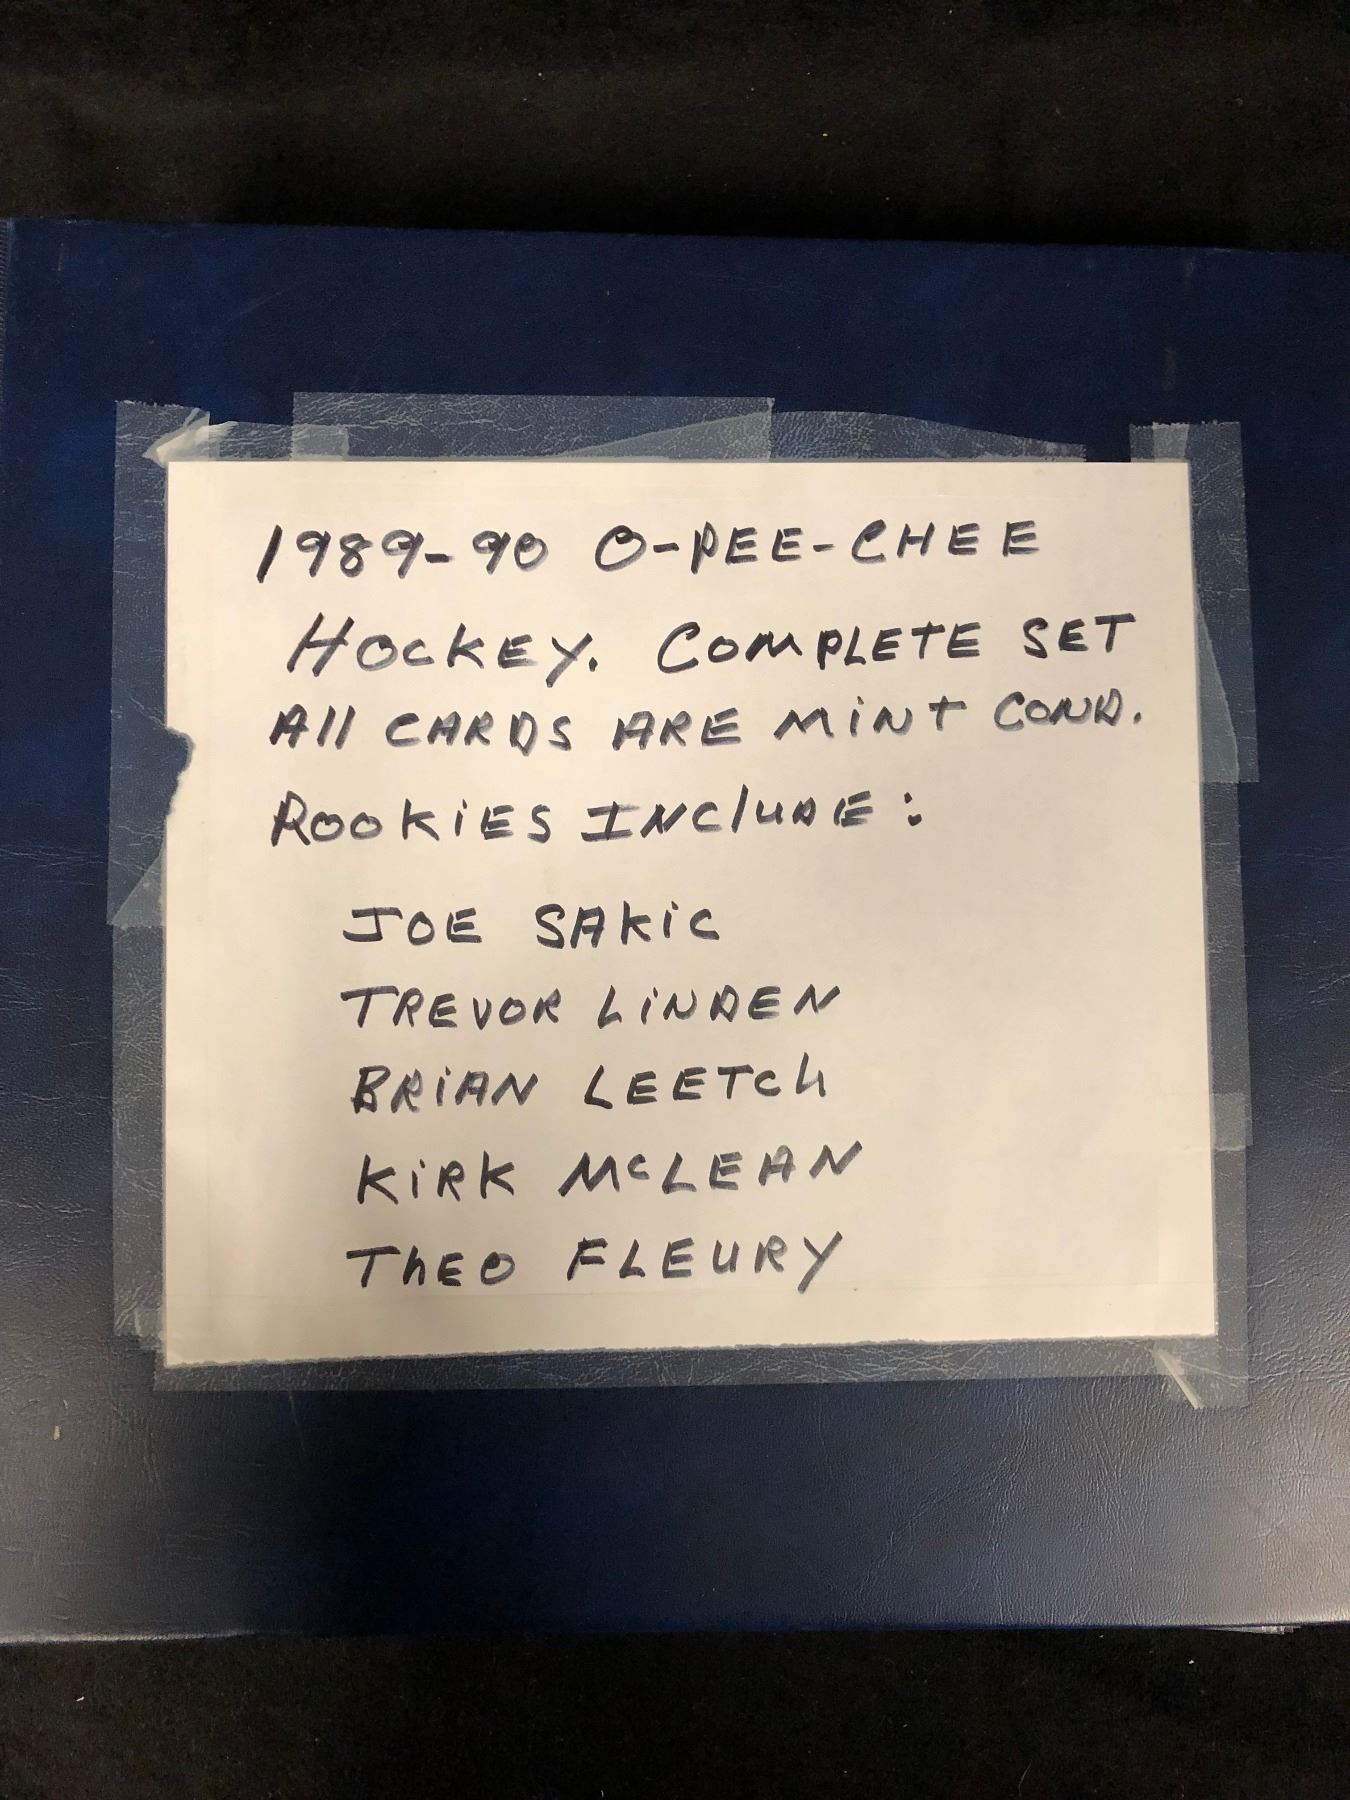 1989-90 O-PEE-CHEE
HOCKEY. COMPLETE SET
All CARDS ARE MiNT COND.
ROOKiES INCludE :
JOE SAKiC
TREVOR LiNDEN
BRiAN LEETCh
KiRK McLEAN
ThEO FLEURY